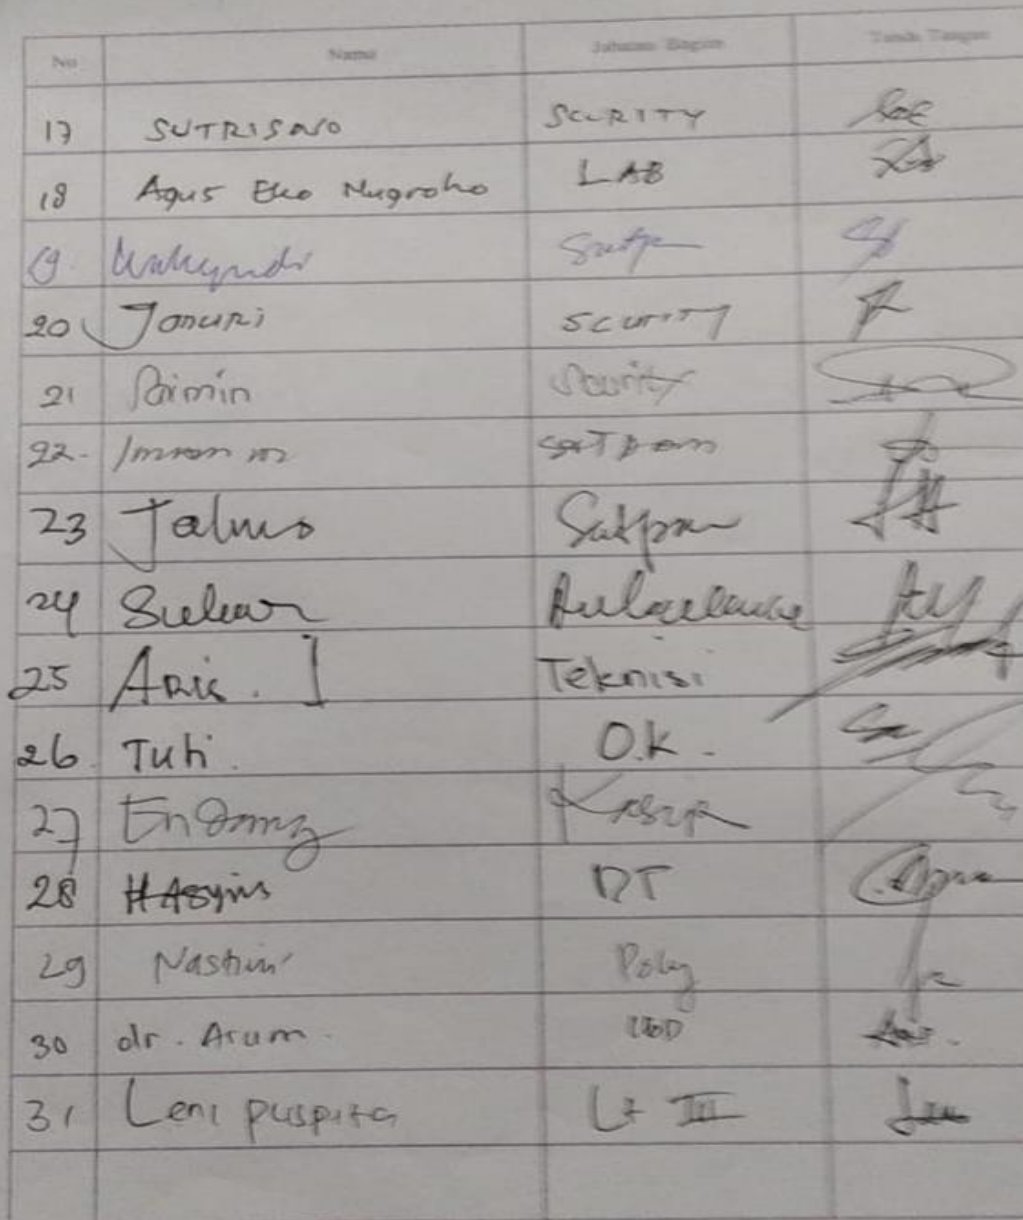 No Nama Jabatan Bagian Tanda Tangan
17 SUTRISNO SCURITY
18 Agus Eko Nugroho LAB
19. Wahyudi Satp
20 Januri SCURITY
21 Paimin Scurity
22. Imron m SATPAM
23 Jalmo Satpam
24 Sukar Ambulance
25 Aris. I Teknisi
26. Tuti. O.K.
27 Endang Kasya
28 HASYIM DT
29 Nashir Poly
30 dr. Arum. UGD
31 Leni puspita Lt III